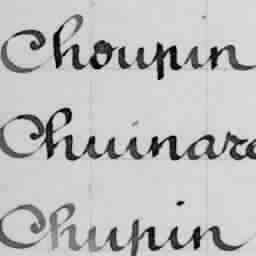 Choupin
Chuinard
Chupin